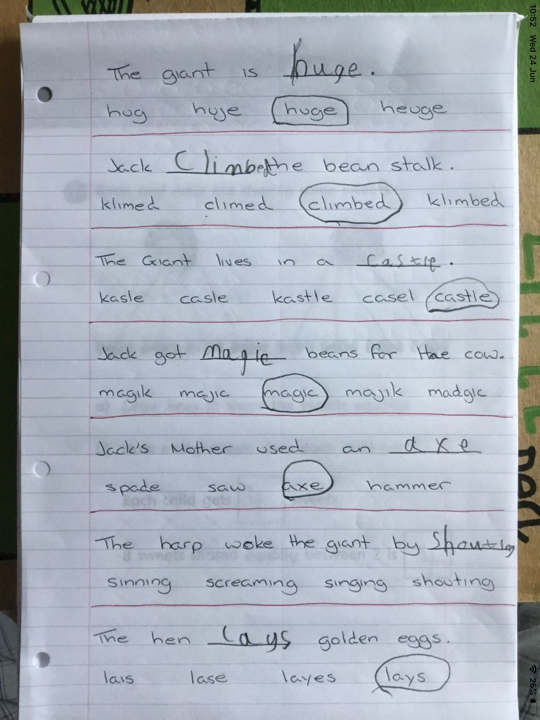 The giant is huge.
hug huje huge heuge
Jack Climbed the bean stalk.
klimed climed climbed klimbed
The Giant lives in a castle.
kasle casle kastle casel castle
Jack got magic beans for the cow.
magik majic magic majik madgic
Jack's Mother used an axe
spade saw axe hammer
The harp woke the giant by
sinning screaming singing shouting
The hen lays golden eggs.
lais lase layes lays
10:52 Wed 24 Jun